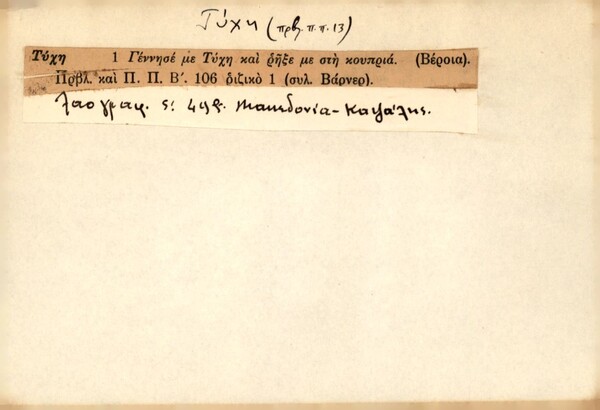 Τύχη (πρβ. π. π. 13)
Τύχη 1 Γέννησέ με Τύχη καὶ ῥῆξε με στὴ κουπριά. (Βέροια).
Πρβλ. καὶ Π. Π. Β΄. 106 ῥιζικὸ 1 (συλ. Βάρνερ).
Λαογραφ. 5: 498. Μακεδονία - Καψάλης.